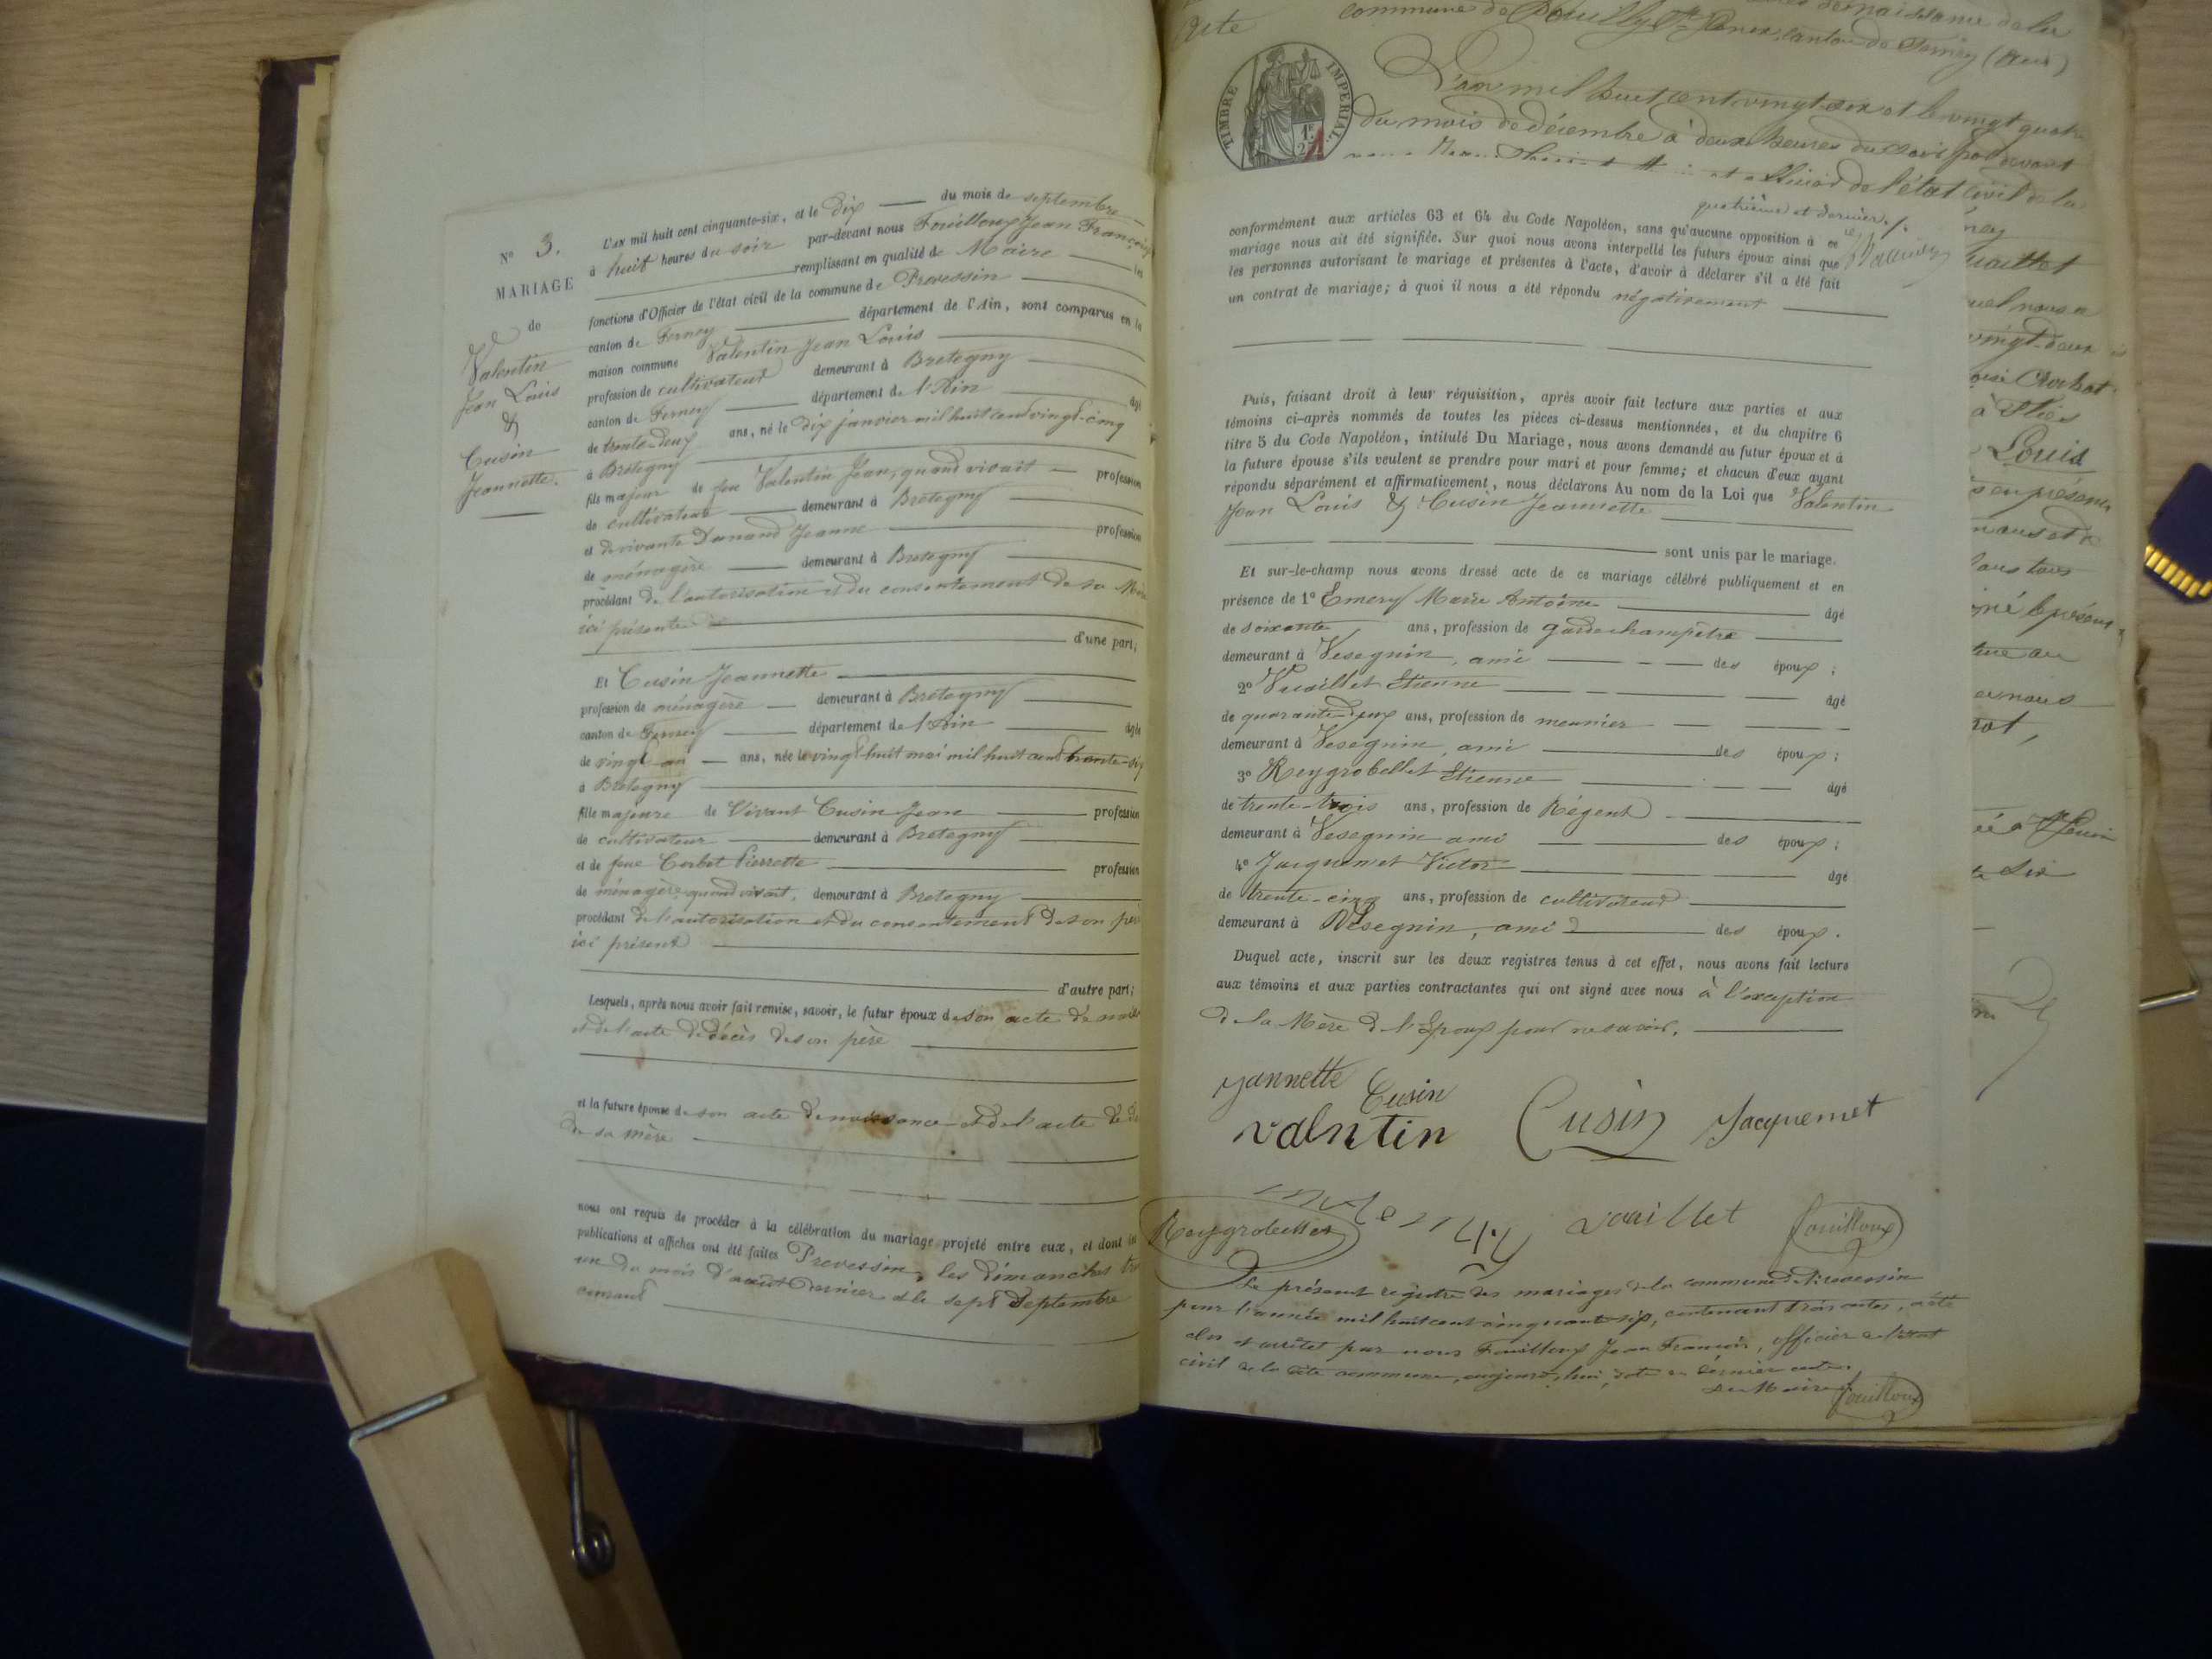 N° 3.
MARIAGE
de
Valentin
Jean Louis
&
Cusin
Jeannette.
L'AN mil huit cent cinquante-six, et le dix du mois de septembre
à huit heures du soir par-devant nous Fouilloux Jean François
remplissant en qualité de Maire les
fonctions d'Officier de l'état civil de la commune de Prevessin
canton de Ferney département de l'Ain, sont comparus en la
maison commune Valentin Jean Louis
profession de cultivateur demeurant à Bretegny
canton de Ferney département de l'Ain âgé
de trente-deux ans, né le dix janvier mil huit cent vingt-cinq
à Brétegny
fils majeur de feu Valentin Jean, quand vivait profession
de cultivateur demeurant à Bretegny
et de vivante Dunand Jeanne profession
de ménagère demeurant à Bretegny
procédant de l'autorisation et du consentement de sa Mère
ici présente
d'une part;
Et Cusin Jeannette
profession de ménagère demeurant à Bretegny
canton de Ferney département de l'Ain âgée
de vingt an ans, née le vingt-huit mai mil huit cent trente-six
à Bretegny
fille majeure de Vivant Cusin Jean profession
de cultivateur demeurant à Bretegny
et de feue Corbet Pierrette profession
de ménagère, quand vivait, demeurant à Bretegny
procédant de l'autorisation et du consentement de son père
ici présent
d'autre part;
Lesquels, après nous avoir fait remise, savoir, le futur époux de son acte de
et de l'acte de décès de son père
et la future épouse de son acte de naissance et de l'acte de
de sa mère
nous ont requis de procéder à la célébration du mariage projeté entre eux, et dont les
publications et affiches ont été faites Prevessin, les dimanches
un du mois d'août dernier et le sept Septembre
courant
Acte
commune de Pouilly St Genix, canton de Ferney (Ain)
TIMBRE IMPERIAL
L'an mil huit cent vingt six et le vingt quatre
du mois de décembre à deux heures du soir par devant
officier de l'état civil de la
quatrième et dernier
conformément aux articles 63 et 64 du Code Napoléon, sans qu'aucune opposition à ce
mariage nous ait été signifiée. Sur quoi nous avons interpellé les futurs époux ainsi que
les personnes autorisant le mariage et présentes à l'acte, d'avoir à déclarer s'il a été fait
un contrat de mariage; à quoi il nous a été répondu négativement
Puis, faisant droit à leur réquisition, après avoir fait lecture aux parties et aux
témoins ci-après nommés de toutes les pièces ci-dessus mentionnées, et du chapitre 6
titre 5 du Code Napoléon, intitulé Du Mariage, nous avons demandé au futur époux et à
la future épouse s'ils veulent se prendre pour mari et pour femme; et chacun d'eux ayant
répondu séparément et affirmativement, nous déclarons Au nom de la Loi que Valentin
Jean Louis & Cusin Jeannette
sont unis par le mariage.
Et sur-le-champ nous avons dressé acte de ce mariage célébré publiquement et en
présence de 1° Emery Marie Antoine âgé
de soixante ans, profession de garde champêtre
demeurant à Vesegnin, ami des époux;
2° Vuaillet Etienne âgé
de quarante-deux ans, profession de meunier
demeurant à Vesegnin, ami des époux;
3° Reygrobellet Etienne âgé
de trente-trois ans, profession de Régent
demeurant à Vesegnin ami des époux;
4° Jacquemet Victor âgé
de trente-cinq ans, profession de cultivateur
demeurant à Vesegnin, ami des époux.
Duquel acte, inscrit sur les deux registres tenus à cet effet, nous avons fait lecture
aux témoins et aux parties contractantes qui ont signé avec nous à l'exception
de la Mère de l'Epoux pour ne savoir.
Jannette Cusin
valntin Cusin Jacquemet
Reygrobellet Vuaillet Fouilloux
Le présent registre des mariages de la commune de Prevessin
pour l'année mil huit cent cinquante-six, contenant trois actes, a été
clos et arrêté par nous Fouilloux Jean François, officier de l'état
civil de la dite commune, aujourd'hui, date du dernier acte.
Le Maire
Fouilloux